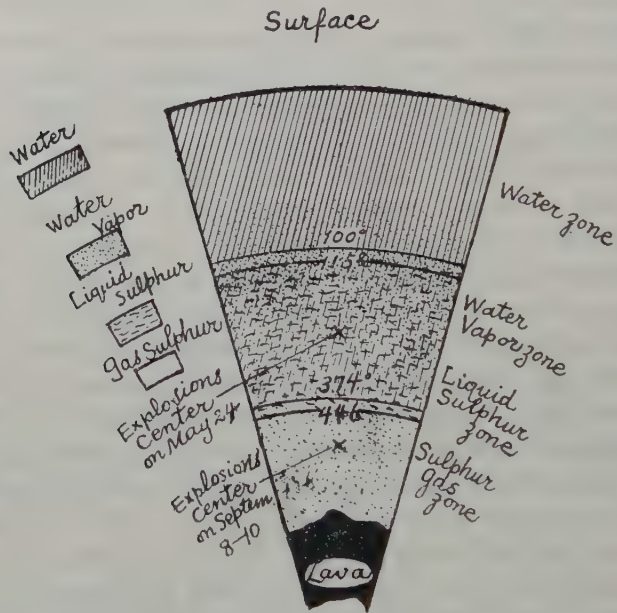 Surface
Water
Water
Vapor
Liquid
Sulphur
gas Sulphur
Explosions
Center
on May 24
Explosions
Center
on Septem
8-10
100°
115°
374°
446
Lava
Water zone
Water
Vapor zone
Liquid
Sulphur
zone
Sulphur
gas
zone